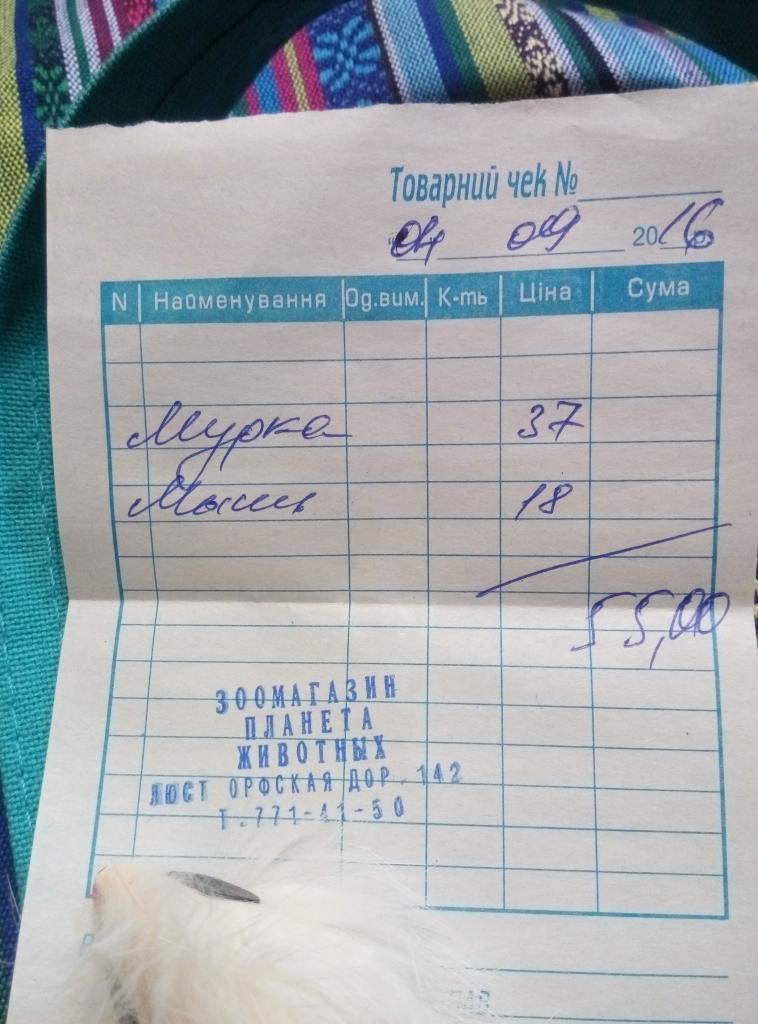 Товарний чек №
04 09 2016
N Найменування Од.вим. К-ть Ціна Сума
Мурка 37
Мышь 18
55,00
ЗООМАГАЗИН
ПЛАНЕТА
ЖИВОТНЫХ
ЛЮСТ ОРФСКАЯ ДОР. 142
Т.771-41-50